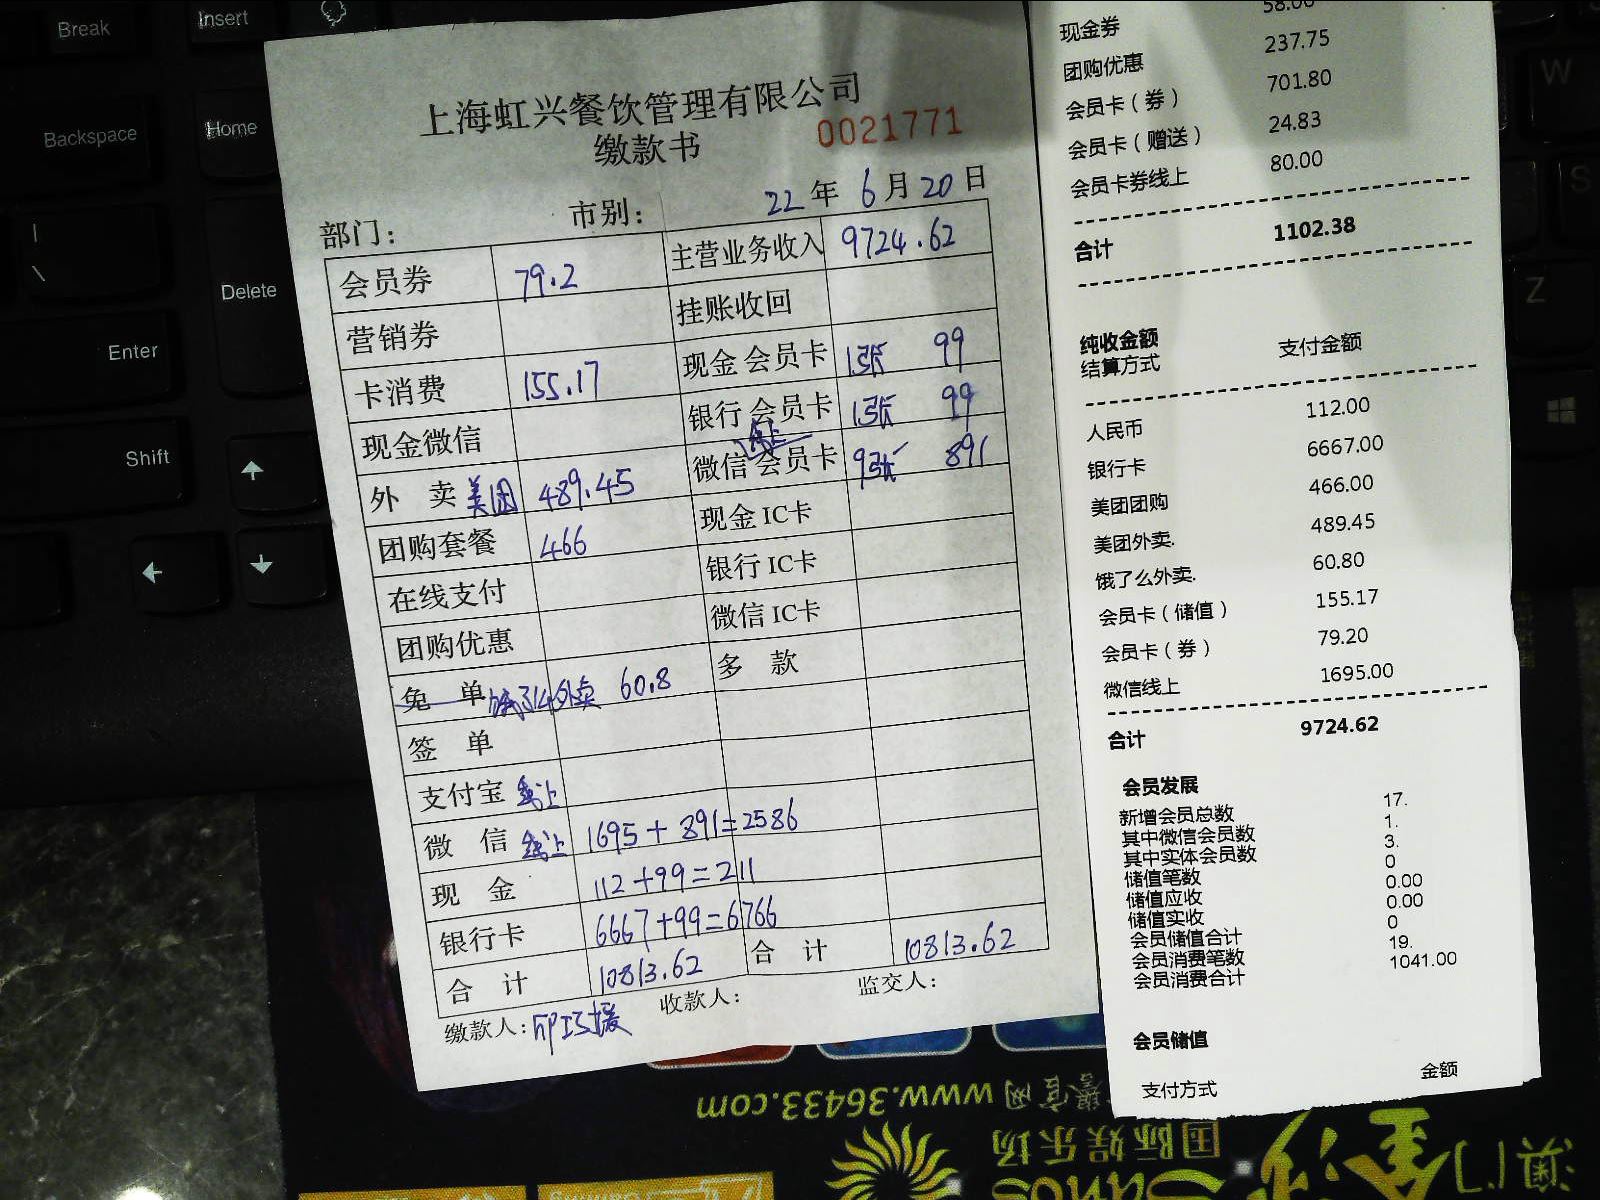 Break
Insert
Backspace
Home
Delete
Enter
Shift
W
S
Z
上海虹兴餐饮管理有限公司
缴款书 0021771
部门： 市别： 22年6月20日
会员券 79.2 主营业务收入 9724.62
营销券 挂账收回
卡消费 155.17 现金会员卡 1张 99
现金微信 银行会员卡 1张 99
外卖 美团 489.45 微信会员卡 9张 891
团购套餐 466 现金IC卡
在线支付 银行IC卡
团购优惠 微信IC卡
免单 饿了么外卖 60.8 多款
签单
支付宝 线上
微信 线上 1695+891=2586
现金 112+99=211
银行卡 6667+99=6766
合计 10813.62 合计 10813.62
缴款人： 收款人： 监交人：
58.00
现金券 237.75
团购优惠 701.80
会员卡（券） 24.83
会员卡（赠送） 80.00
会员卡券线上
合计 1102.38
纯收金额
结算方式 支付金额
人民币 112.00
银行卡 6667.00
美团团购 466.00
美团外卖. 489.45
饿了么外卖. 60.80
会员卡（储值） 155.17
会员卡（券） 79.20
微信线上 1695.00
合计 9724.62
会员发展
新增会员总数 17.
其中微信会员数 1.
其中实体会员数 3.
储值笔数 0
储值应收 0.00
储值实收 0.00
会员储值合计 0
会员消费笔数 19.
会员消费合计 1041.00
会员储值
支付方式 金额
www.36433.com
国际娱乐场
澳门金沙
Sands